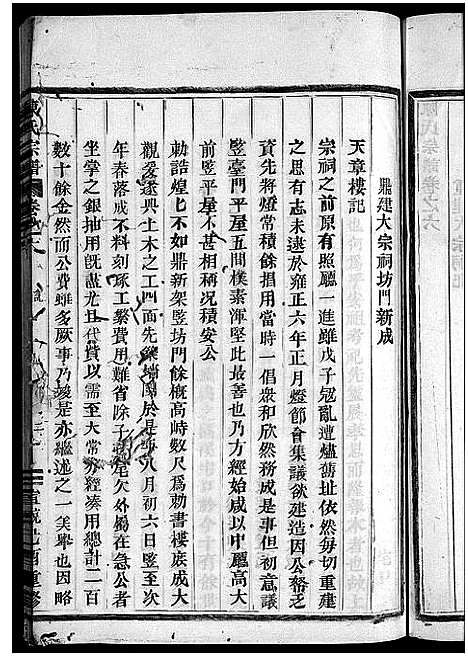 鼎建大宗祠坊門新成
天章樓記
宗祠之前原有照廳一進雖戊子冠亂遭燼舊址依然每切重建
之思有志未逮於雍正六年正月燈節會集議欲建造因公帑乏
資先將常積餘捐用當時一倡衆和欣然務成是事但初意議
竪臺門平屋五間樸素渾堅此最善也乃方經始咸以中廳高大
前竪平屋不甚相稱况積安公
勅誥煌上不如鼎新架竪坊門餘概高峙數尺爲勅書樓庶成大
觀爰遂興土木之工四面先於是海八月初六日竪至次
年春落成不料刻琢工繁費用難省除子是欠外觸在急公者
坐掌之銀抽用旣盡尤且代費以需至大常亦經湊用總計二百
數十餘金然而公費雖多厥事乃竣是亦繼述之一美舉也因略
氏宗譜
重修
氏宗譜卷之六